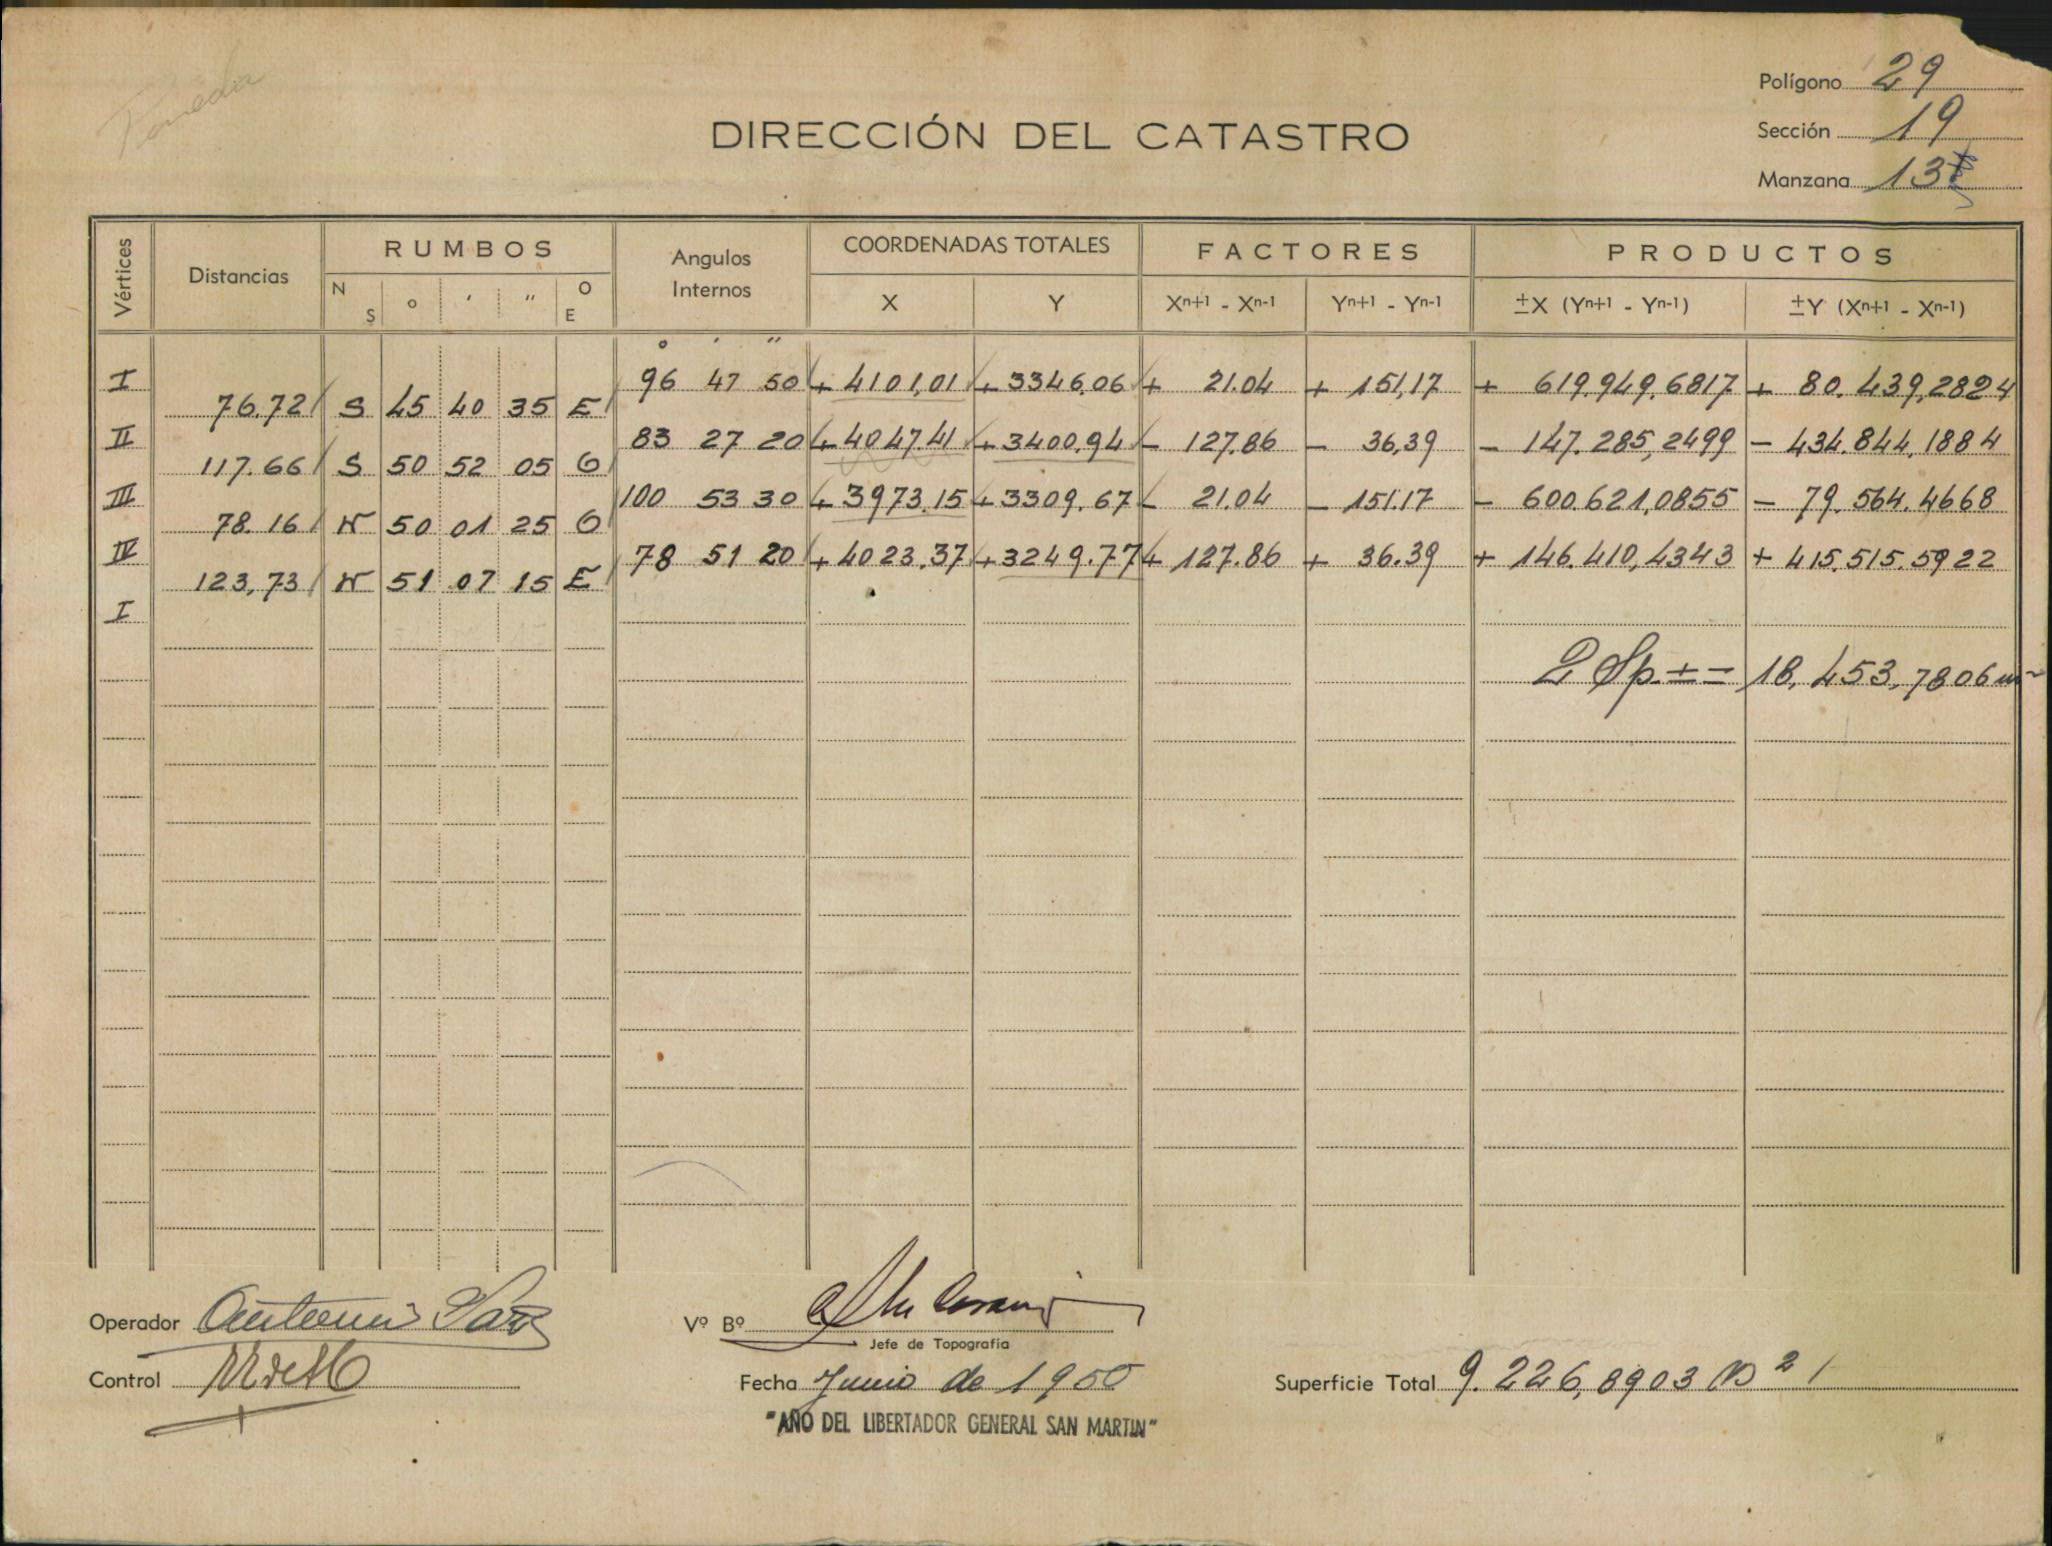 Polígono 29
DIRECCIÓN DEL CATASTRO
Sección 19
Manzana 13
Vértices Distancias RUMBOS Angulos Internos COORDENADAS TOTALES FACTORES PRODUCTOS
N S o ′ ″ O E X Y Xn+1 - Xn-1 Yn+1 - Yn-1 ±X (Yn+1 - Yn-1) ±Y (Xn+1 - Xn-1)
o ′ ″
I 96 47 50 + 4101,01 + 3346.06 + 21.04 + 151,17 + 619.949.6817 + 80.439,2824
76.72 S 45 40 35 E
II 83 27 20 + 4047.41 + 3400.94 - 127.86 - 36,39 - 147.285,2499 - 434.844.1884
117.66 S 50 52 05 O
III 100 53 30 + 3973.15 + 3309.67 - 21.04 - 151.17 - 600.621,0855 - 79.564.4668
78.16 N 50 01 25 O
IV 78 51 20 + 4023.37 + 3249.77 + 127.86 + 36.39 + 146.410,4343 + 415.515.5922
123,73 N 51 07 15 E
I
2 Sp ± = 18.453,7806 m²
Operador Antonio
Vº Bº
Jefe de Topografía
Control
Fecha Junio de 1950
Superficie Total 9.226,8903 m²
"AÑO DEL LIBERTADOR GENERAL SAN MARTIN"